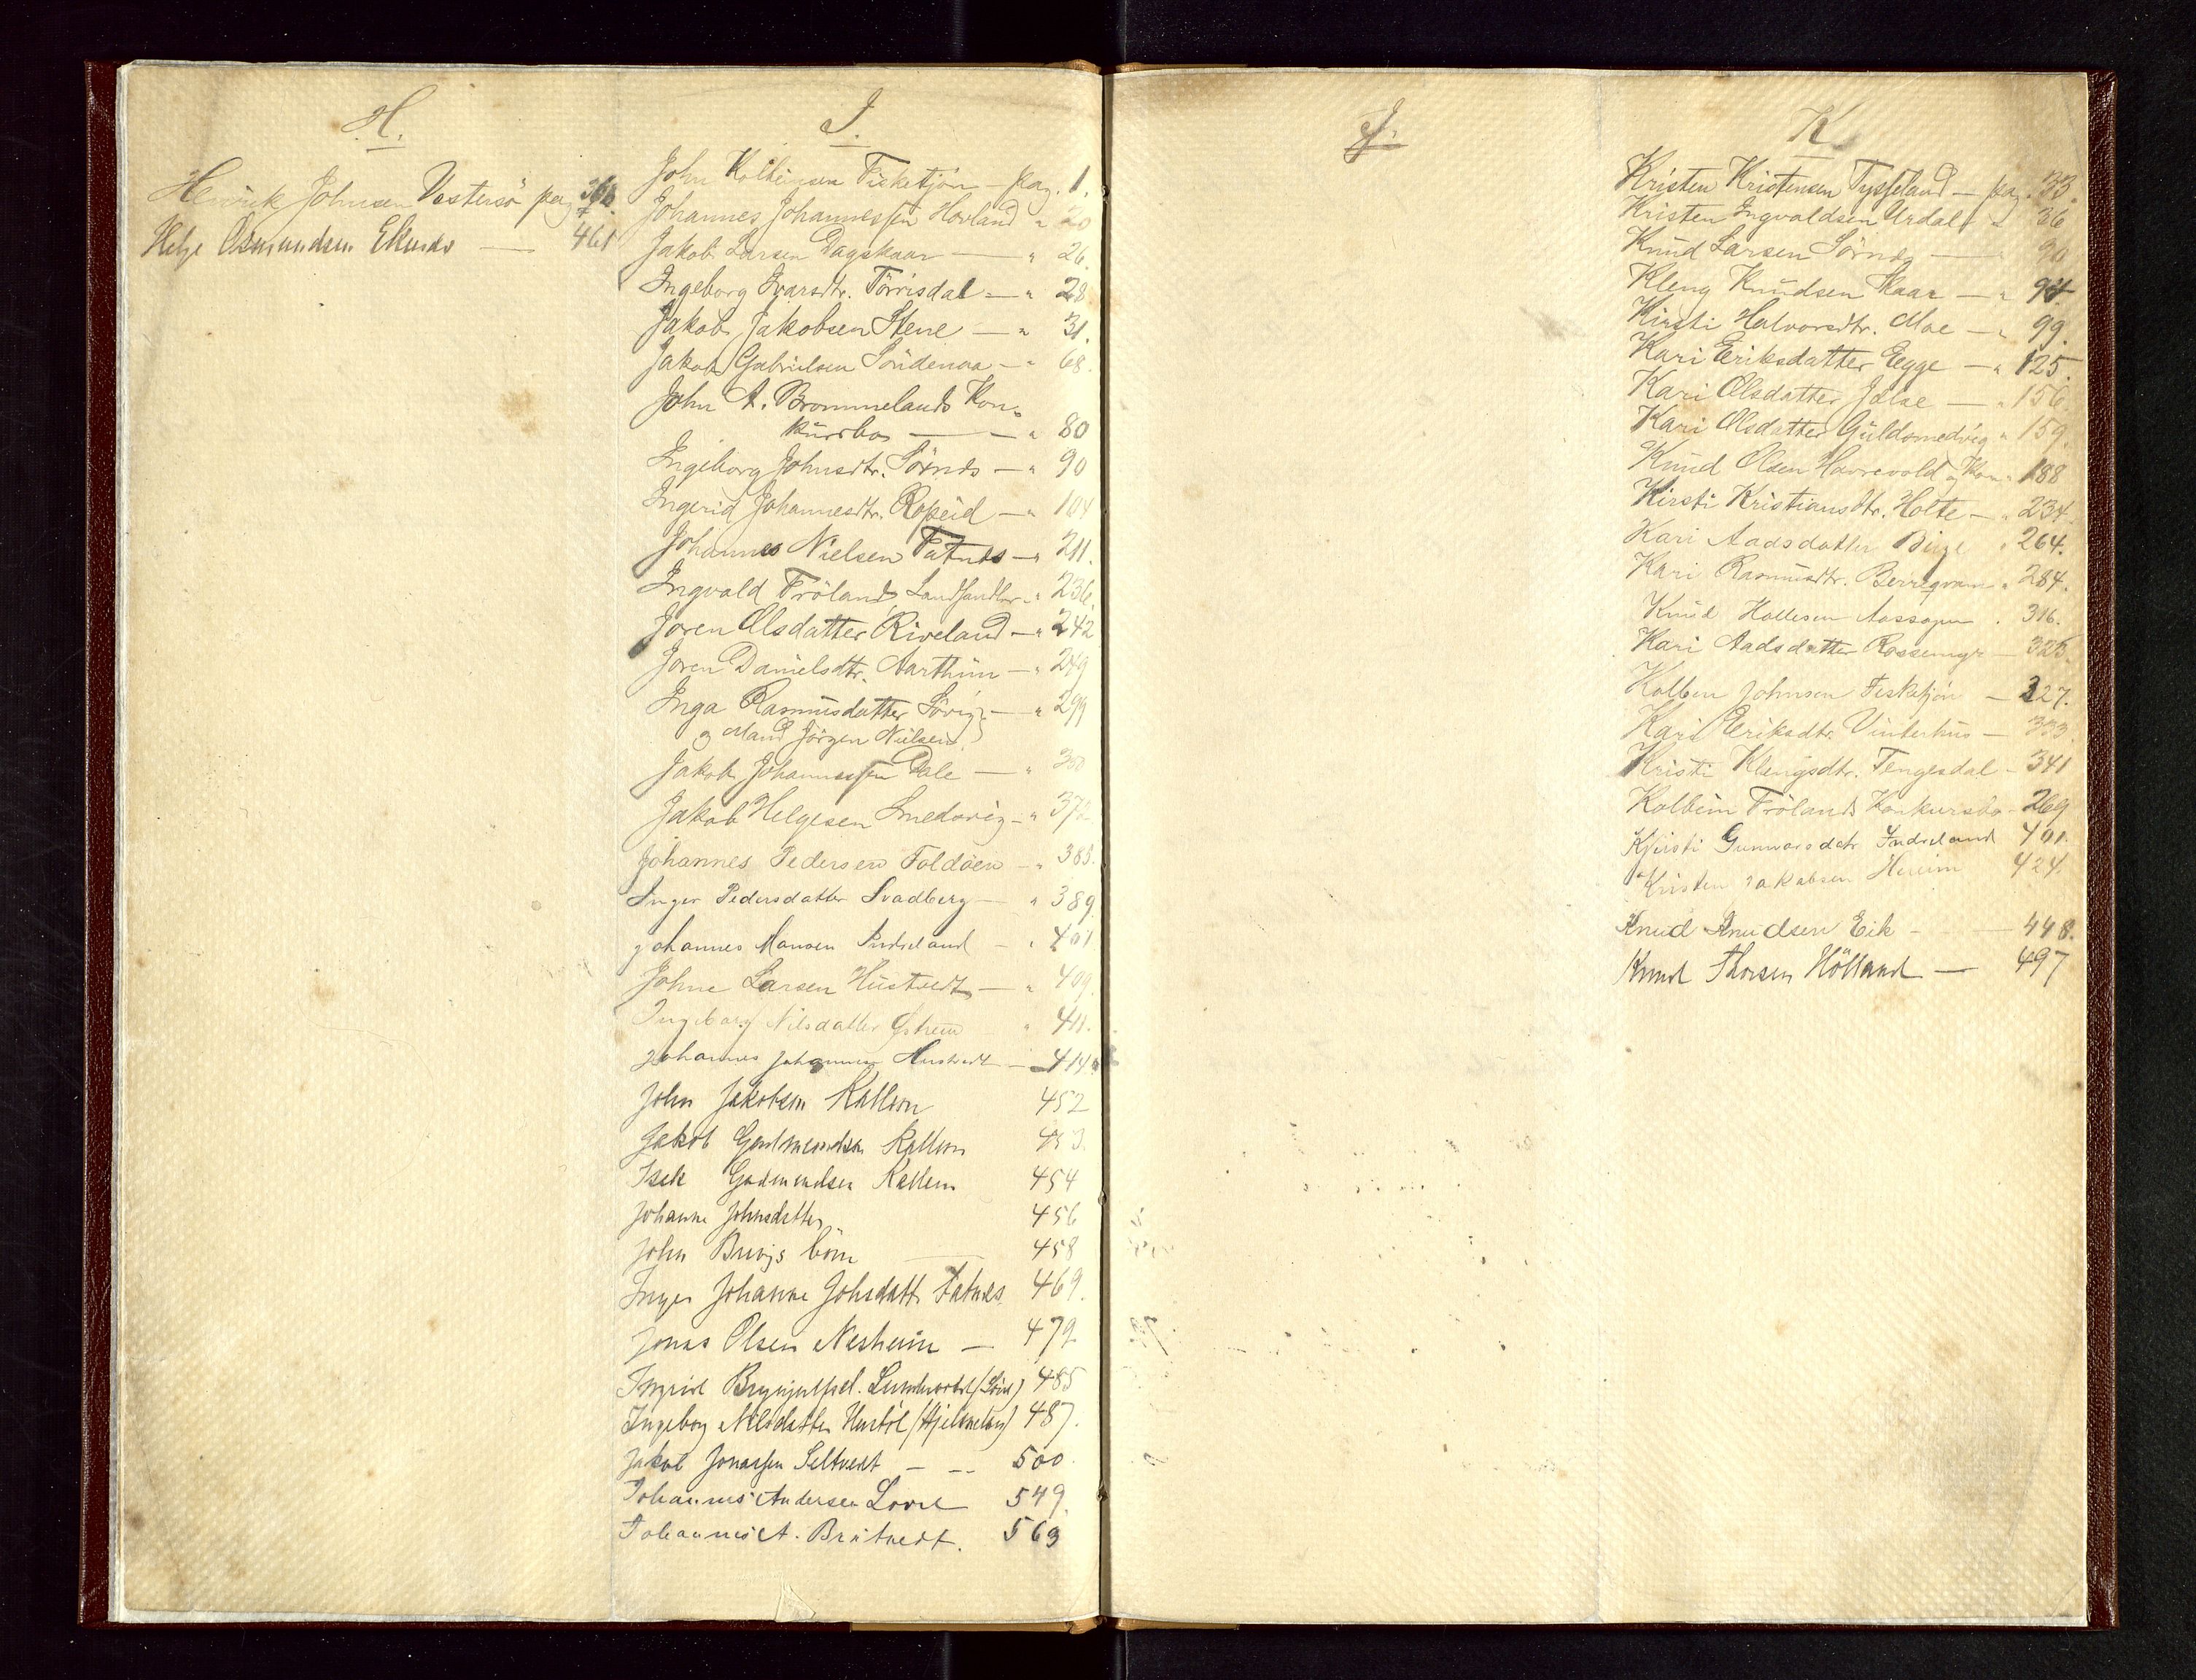 H.
Henrik Johnsen Vestersö pag 366.
Helge Osmundsen Eknæs — 461
I.
John Kolbeinsen Fisketjön — pag. 1.
Johannes Johannessen Hovland " 20
Jakob Larsen Dagskaar — " 26.
Ingeborg Ivarsdtr. Törrisdal — " 28
Jakob Jakobsen Stene — " 31.
Jakob Gabrielsen Söndenaa — " 68.
John A. Brommelands Kon-
kursbo — " 80
Ingeborg Johnsdtr. Sörnes — " 90
Ingerid Johannesdtr. Ropeid — " 104
Johannes Nielsen Fatnes — " 211.
Ingvald Frölands Landhandler " 236.
Joren Olsdatter Riveland — " 242
Joren Danielsdtr. Aarthun — " 249
Inga Rasmusdatter Sövig — " 299
og Mand Jörgen Nielsen
Jakob Johannessen Dale — " 350
Jakob Helgesen Smedvig — " 372
Johannes Pedersen Foldöen — " 385.
Inger Pedersdatter Svadberg — " 389.
Johannes Hansen Indreland — " 401
Johne Larsen Hustvedt — " 409.
Ingeborg Nilsdatter Østrem " 411.
Johannes Johannesen Hustvedt — 414
John Jakobsen Kallem 452
Jakob Gudmundsen Kallem 453.
Isak Gudmundsen Kallem 454
Johanne Johnsdatter 456
John Buvigs börn 458
Inger Johanne Johsdatt. Fatnes 469.
Jonas Olsen Nesheim — 479
Ingrid Brynjulfsd. 485
Ingeborg Nilsdatter (Hjelmeland) 487.
Jakob Jonassen Seltvedt — 500.
Johannes Andersen Lovre 549.
Johannes A. Bratvedt. 563
J.
K.
Kristen Kristensen Tysseland — pag. 33.
Kristen Ingvaldsen Urdal " 36
Knud Larsen Sörnes — 90
Kleng Knudsen Skaar — " 94.
Kirsti Halvorsdtr. Moe — " 99.
Kari Eriksdatter Egge — " 125.
Kari Olsdatter Jelse — " 156.
Kari Olsdatter Guldsmedvig " 159.
Knud Olsen Havrevold og Kone 188
Kirsti Kristiansdtr. Holte — " 234.
Kari Aadsdatter " 264.
Kari Rasmusdtr. Berregvam " 284.
Knud Kollesen . 316.
Kari Aadsdatter — 325.
Kolben Johnsen Fisketjön — 327.
Kari Eriksdtr. Vinterhus — 333.
Kristi Klengsdtr. Tengesdal — 341
Kolbein Frölands Konkursbo — 269
Kjirsti Gunnarsdatr Indreland 401.
Kristen Jakobsen 424.
Knud Knudsen Eik — 448.
Knud Thorsen Hölland — 497